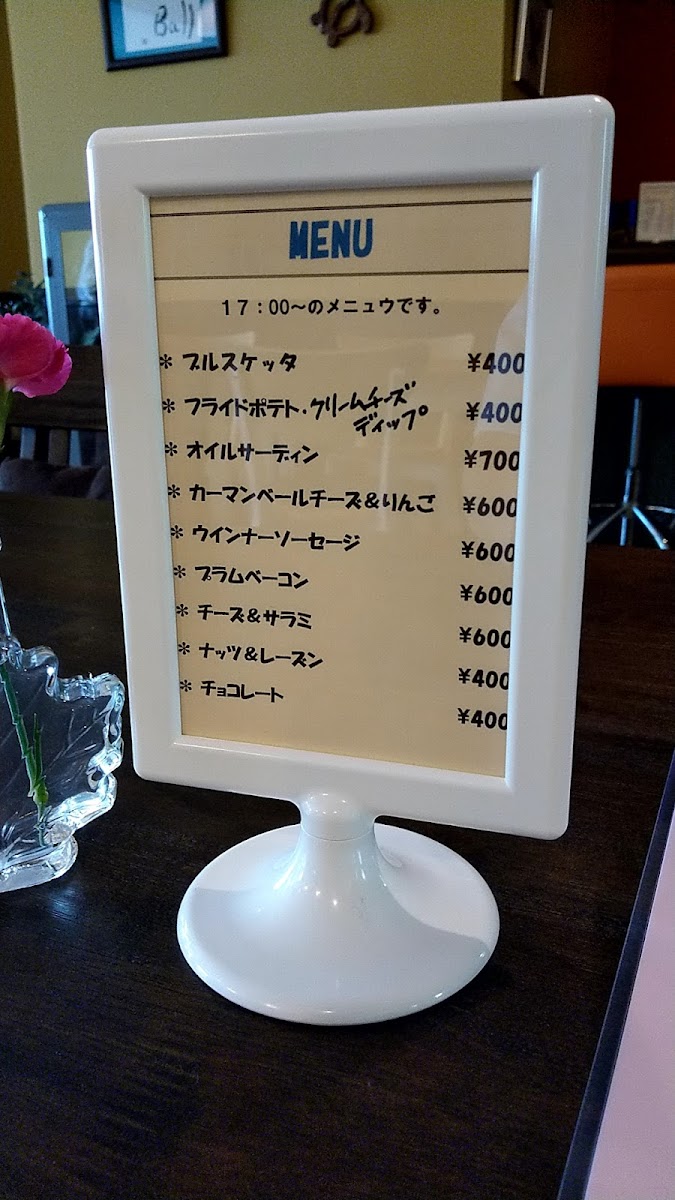 Ball
MENU
17:00~のメニュウです。
* ブルスケッタ ¥400
* フライドポテト・クリームチーズ ¥400
ディップ
* オイルサーディン ¥700
* カーマンベールチーズ&りんご ¥600
* ウインナーソーセージ ¥600
* プラムベーコン ¥600
* チーズ&サラミ ¥600
* ナッツ&レーズン ¥400
* チョコレート ¥400